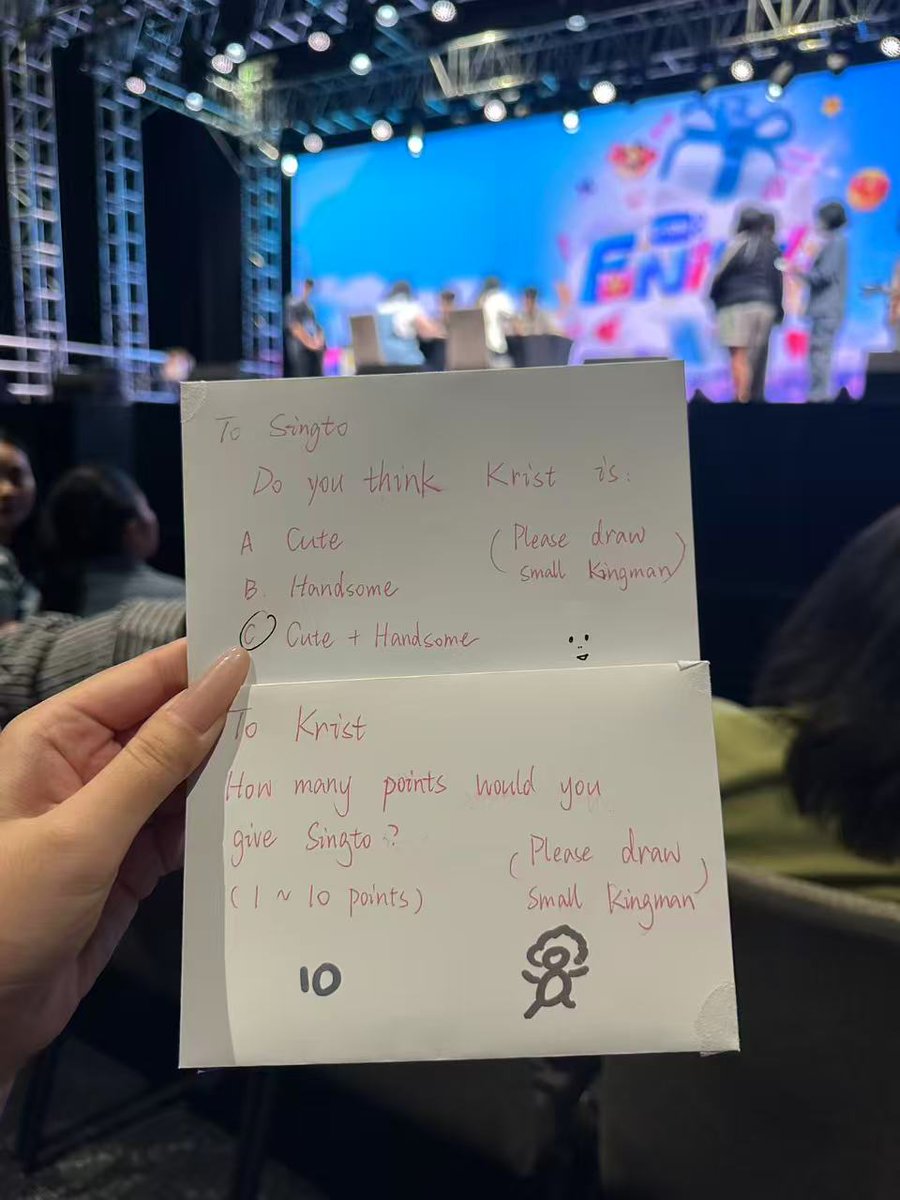 To Singto
Do you think Krist is:
A Cute
B. Handsome
C Cute + Handsome
(Please draw
small Kingman)
To Krist
How many points would you
give Singto?
(1 ~ 10 points)
(Please draw
small Kingman)
10